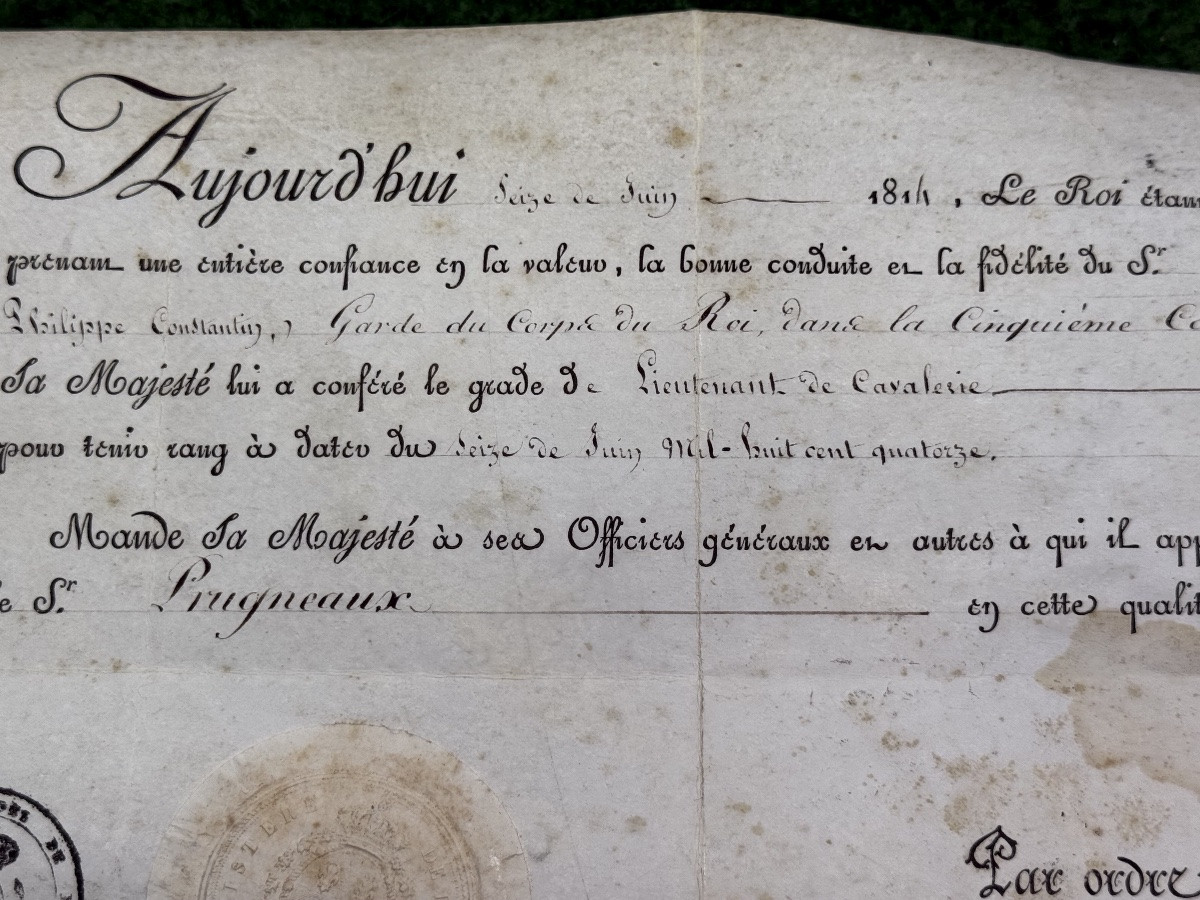 Aujourd'hui Seize de Juin 1814, Le Roi étant
prenant une entière confiance en la valeur, la bonne conduite et la fidélité du Sr.
Philippe Constantin,) Garde du Corps du Roi, dans la Cinquiéme Co
Sa Majesté lui a conféré le grade de Lieutenant de Cavalerie
pour tenir rang à dater du Seize de Juin Mil-huit cent quatorze.
Mande Sa Majesté à ses Officiers généraux et autres à qui il app
le Sr. Prugneaux en cette qualit
DE
ISTÈRE
Par ordre